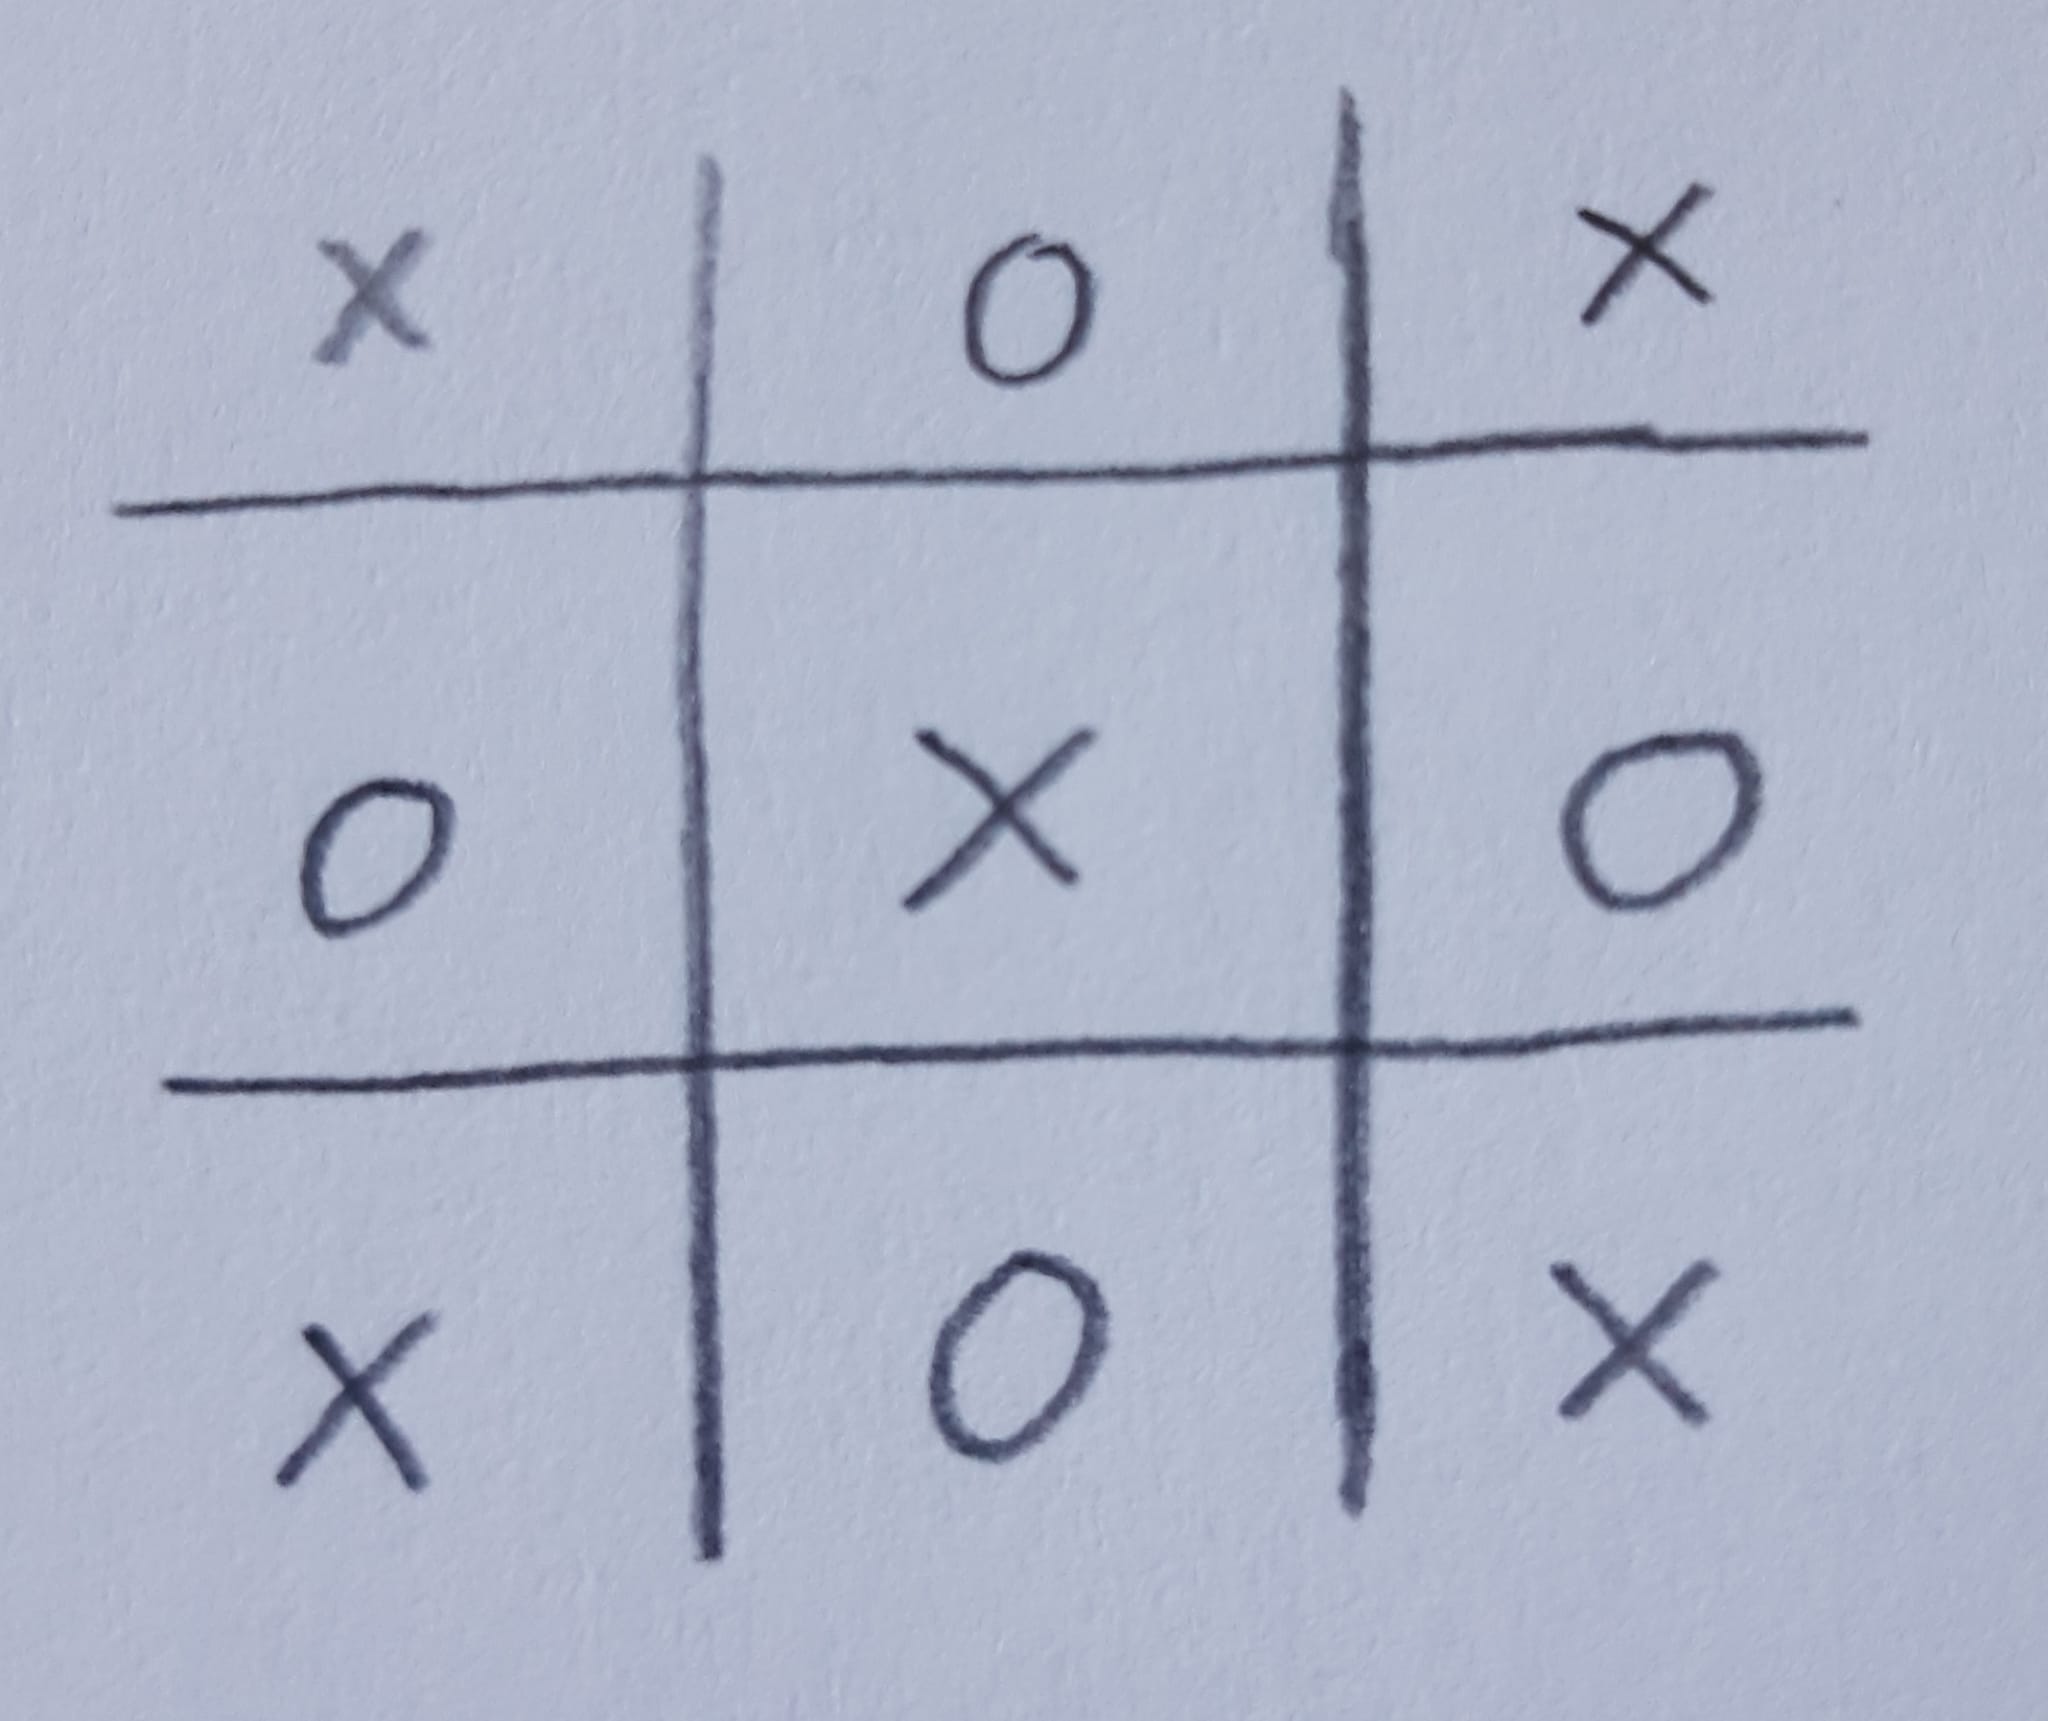 X O X
O X O
X O X